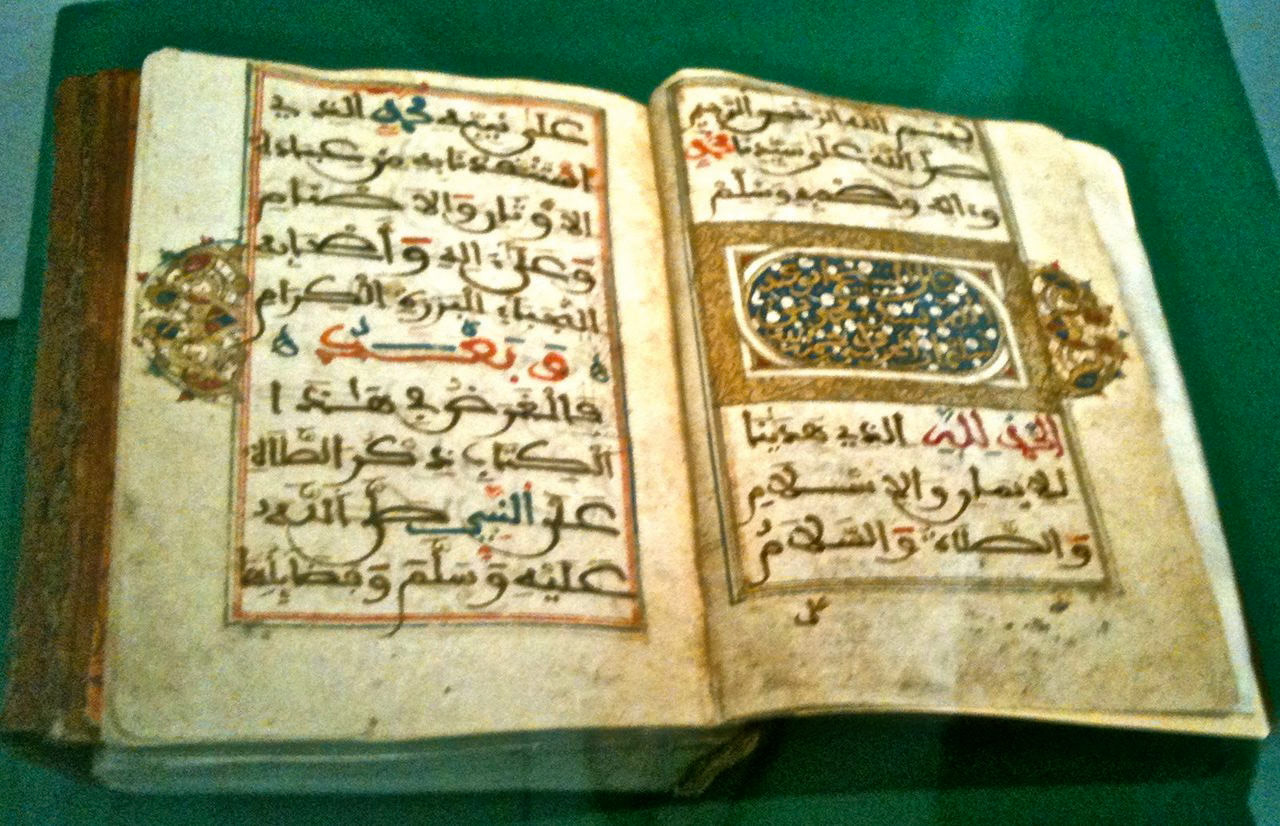 بسم الله الرحمن الرحيم
صلى الله على سيدنا محمد
وءاله وصحبه وسلم
الحمد لله الذي هدينا
للايمان والاسلام
وَالصلاة وَالسلامُ
على نبيه محمد الذي
استنقذنا به من عبادة
الاوثان والاصنام
وعلىٰ ءاله وَأصحابه
النجباء البررة الكرام
وَبَعْدُ
فالغرضُ في هٰذا
الكتاب ذكر الصَّلاة
على النَّبي صلَّى الله
عليه وَسَلَّمَ وَفضايلها